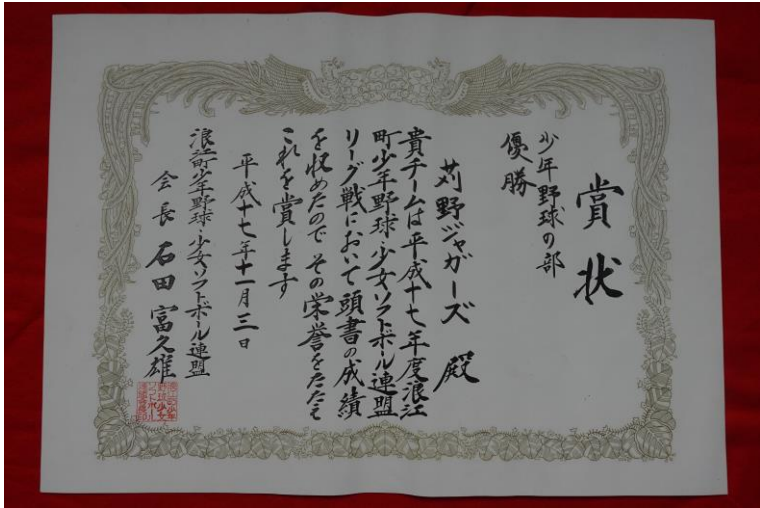 賞状
少年野球の部
優勝
苅野ジャガーズ 殿
貴チームは平成十七年度浪江
町少年野球・少女ソフトボール連盟
リーグ戦において頭書の成績
を収めたので その栄誉をたたえ
これを賞します
平成十七年十一月三日
浪江町少年野球・少女ソフトボール連盟
会長 石田富久雄